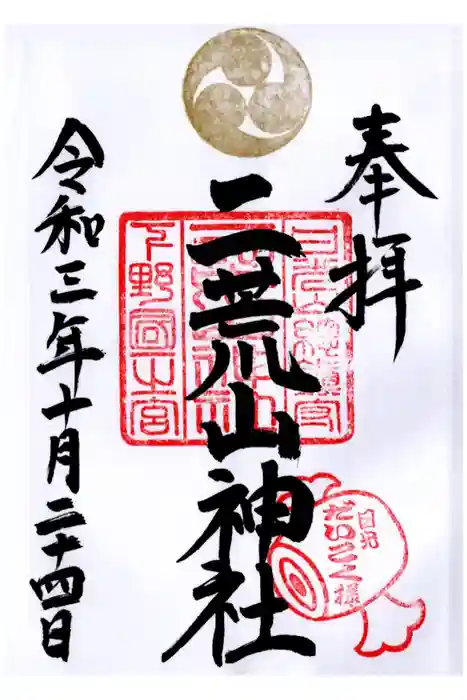 奉拝
二荒山神社
令和三年十月二十四日
下野國一之宮
日光
だいこく様